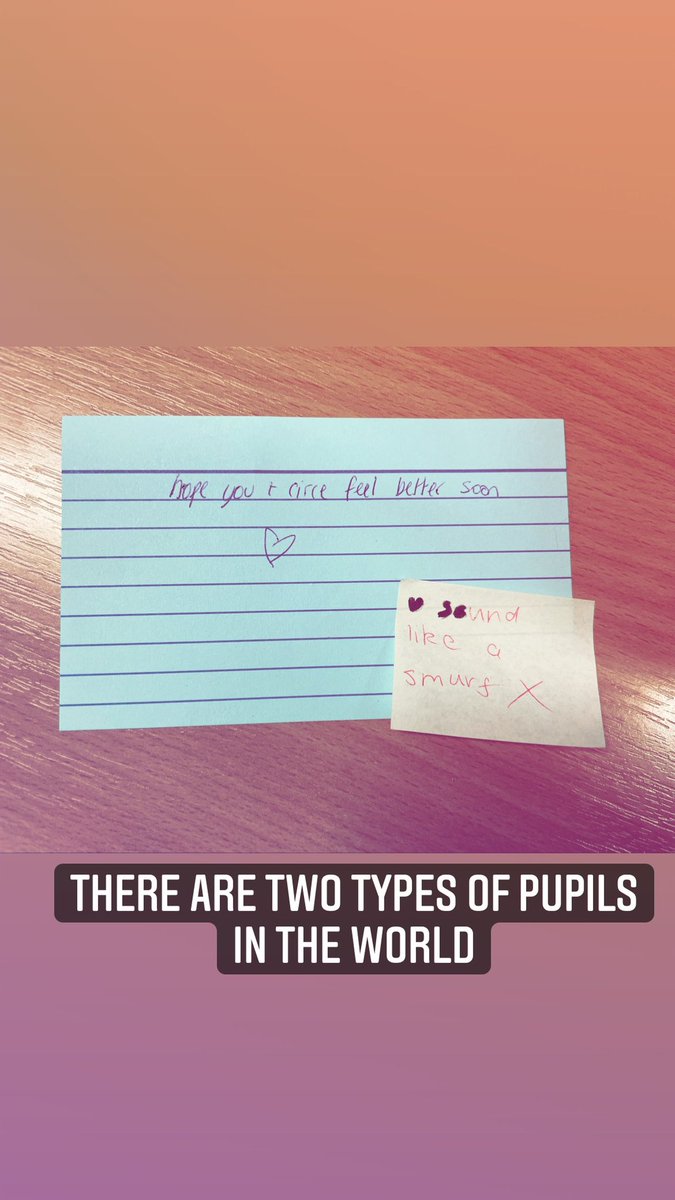 hope you + circe feel better soon
sound
like a
smurf X
THERE ARE TWO TYPES OF PUPILS
IN THE WORLD